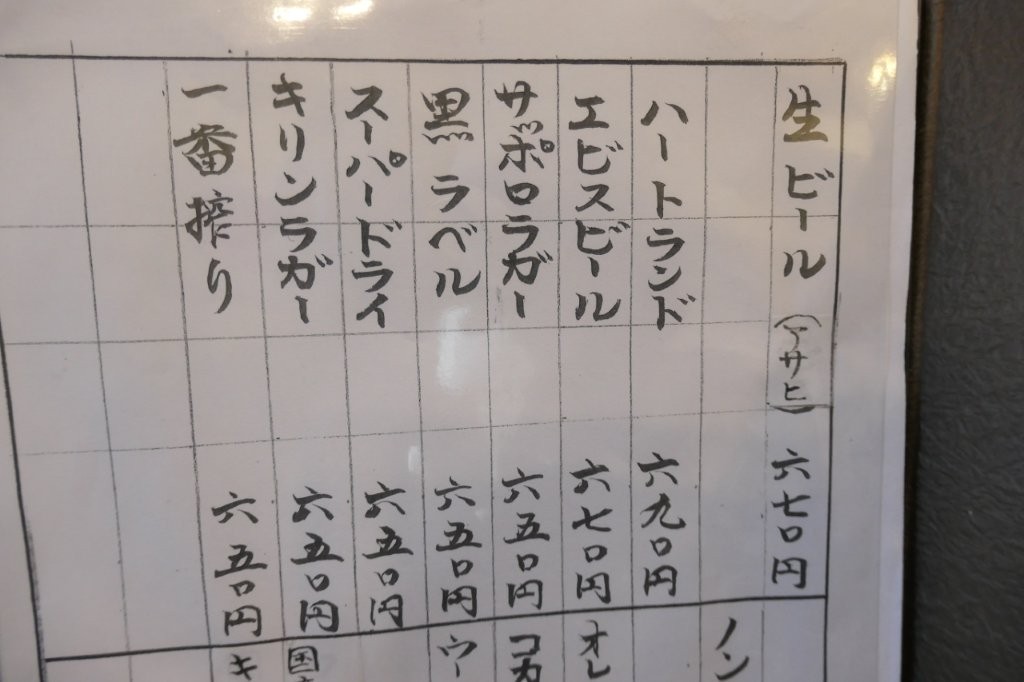 生ビール（アサヒ） 六七〇円
ハートランド 六九〇円
エビスビール 六七〇円
サッポロラガー 六五〇円
黒ラベル 六五〇円
スーパードライ 六五〇円
キリンラガー 六五〇円
一番搾り 六五〇円
ノン
オレ
コカ
ウー
国
キ